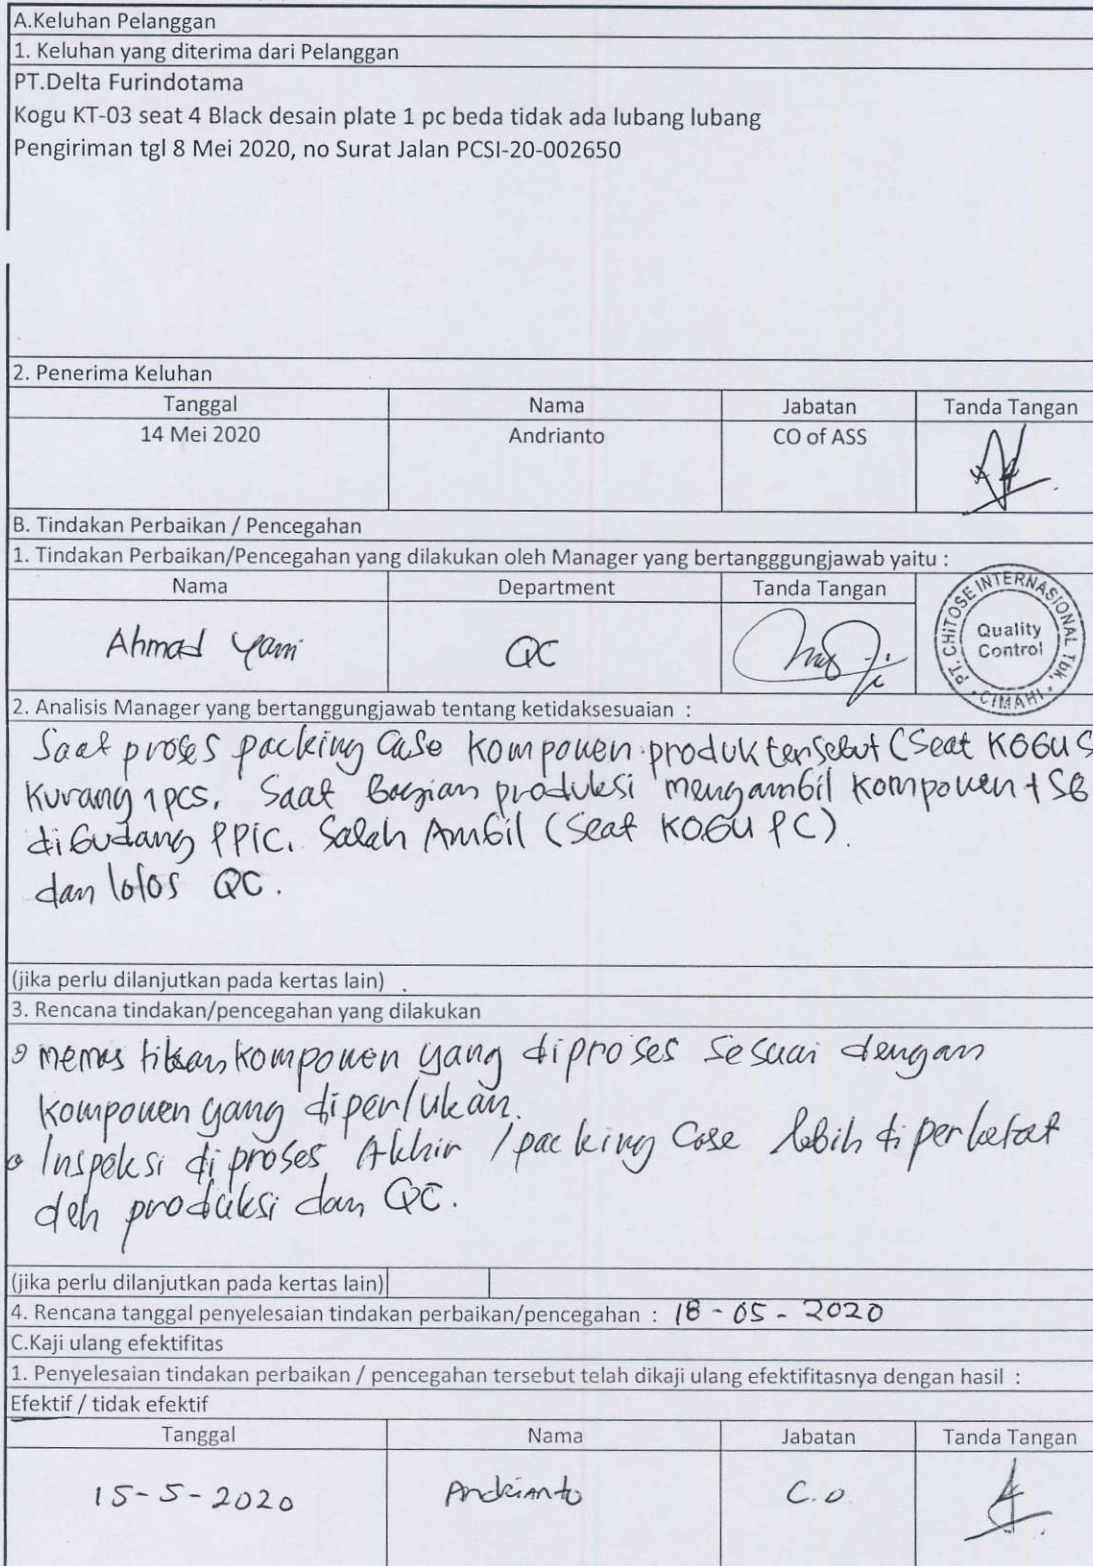 A.Keluhan Pelanggan
1. Keluhan yang diterima dari Pelanggan
PT.Delta Furindotama
Kogu KT-03 seat 4 Black desain plate 1 pc beda tidak ada lubang lubang
Pengiriman tgl 8 Mei 2020, no Surat Jalan PCSI-20-002650
2. Penerima Keluhan
Tanggal Nama Jabatan Tanda Tangan
14 Mei 2020 Andrianto CO of ASS
B. Tindakan Perbaikan / Pencegahan
1. Tindakan Perbaikan/Pencegahan yang dilakukan oleh Manager yang bertangggungjawab yaitu :
Nama Department Tanda Tangan
Ahmad Yani QC
PT. CHITOSE INTERNASIONAL Tbk.
Quality
Control
CIMAHI
2. Analisis Manager yang bertanggungjawab tentang ketidaksesuaian :
Saat proses packing Case komponen produk tersebut (Seat KOGU S
Kurang 1 pcs. Saat Bagian produksi mengambil komponen tSB
di Gudang PPIC. Salah Ambil (Seat KOGU PC).
dan lolos QC.
(jika perlu dilanjutkan pada kertas lain)
3. Rencana tindakan/pencegahan yang dilakukan
memastikan komponen yang diproses sesuai dengan
komponen yang diperlukan.
Inspeksi diproses Akhir / packing Case lebih diperketat
oleh produksi dan QC.
(jika perlu dilanjutkan pada kertas lain)
4. Rencana tanggal penyelesaian tindakan perbaikan/pencegahan : 18 - 05 - 2020
C.Kaji ulang efektifitas
1. Penyelesaian tindakan perbaikan / pencegahan tersebut telah dikaji ulang efektifitasnya dengan hasil :
Efektif / tidak efektif
Tanggal Nama Jabatan Tanda Tangan
15-5-2020 Andrianto C.O